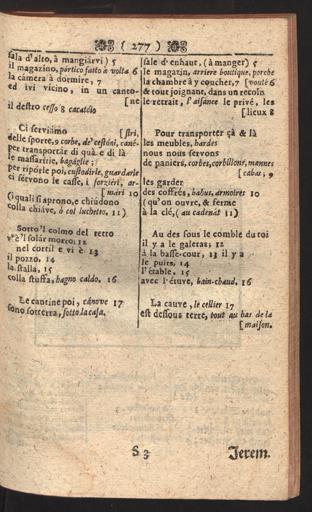 ( 277 )
sala d'alto, à mangiàrvi) 5
il magazino, pórtico fatto à volta 6
la cámera à dormire, 7
ed ivi vicino, in un canto-
[ne
il destro cesso 8 cacatóio
Ci serviámo [stri,
delle sporte, 9 corbe, de' cestóni, cané-
per transportàr di quà e di là
le massaritie, bagáglie;
per ripórle poi, custodirle, guardarle
ci sérvono le casse, i forziéri, ar-
[mári 10
(i quali s'aprono, e chiúdono
colla chiáve, ò col luchetto. 11)
Sotto 'l colmo del retto
v'è 'l solár morto. 12
nel cortil e vi è 13
il pozzo. 14
la stalla, 15
colla stuffa, bagno caldo. 16
Le cantine poi, cánove 17
sono sotterra, sotto la casa.
sale d'enhaut, (à manger) 5
le magazin, arriere boutique, porche
la chambre à y coucher, 7 [vouté 6
& tout joignant, dans un recoin
le retrait, l'aisance le privé, les
[lieux 8
Pour transporter çà & là
les meubles, hardes
nous nous servons
de paniers, corbes, corbillons, mannes
[cabas; 9
les garder
des coffres, bahus, armoires 10
(qu'on ouvre, & ferme
à la clé, (au cadenat 11)
Au des sous le comble du toi
il y a le galetas; 12
à la basse-cour, 13 il y a
le puits, 14
l'étable. 15
avec l'étuve, bain-chaud. 16
La cauve, le cellier 17
est dessous terre, tout au bas de la
[maison.
S 3
Jerem.